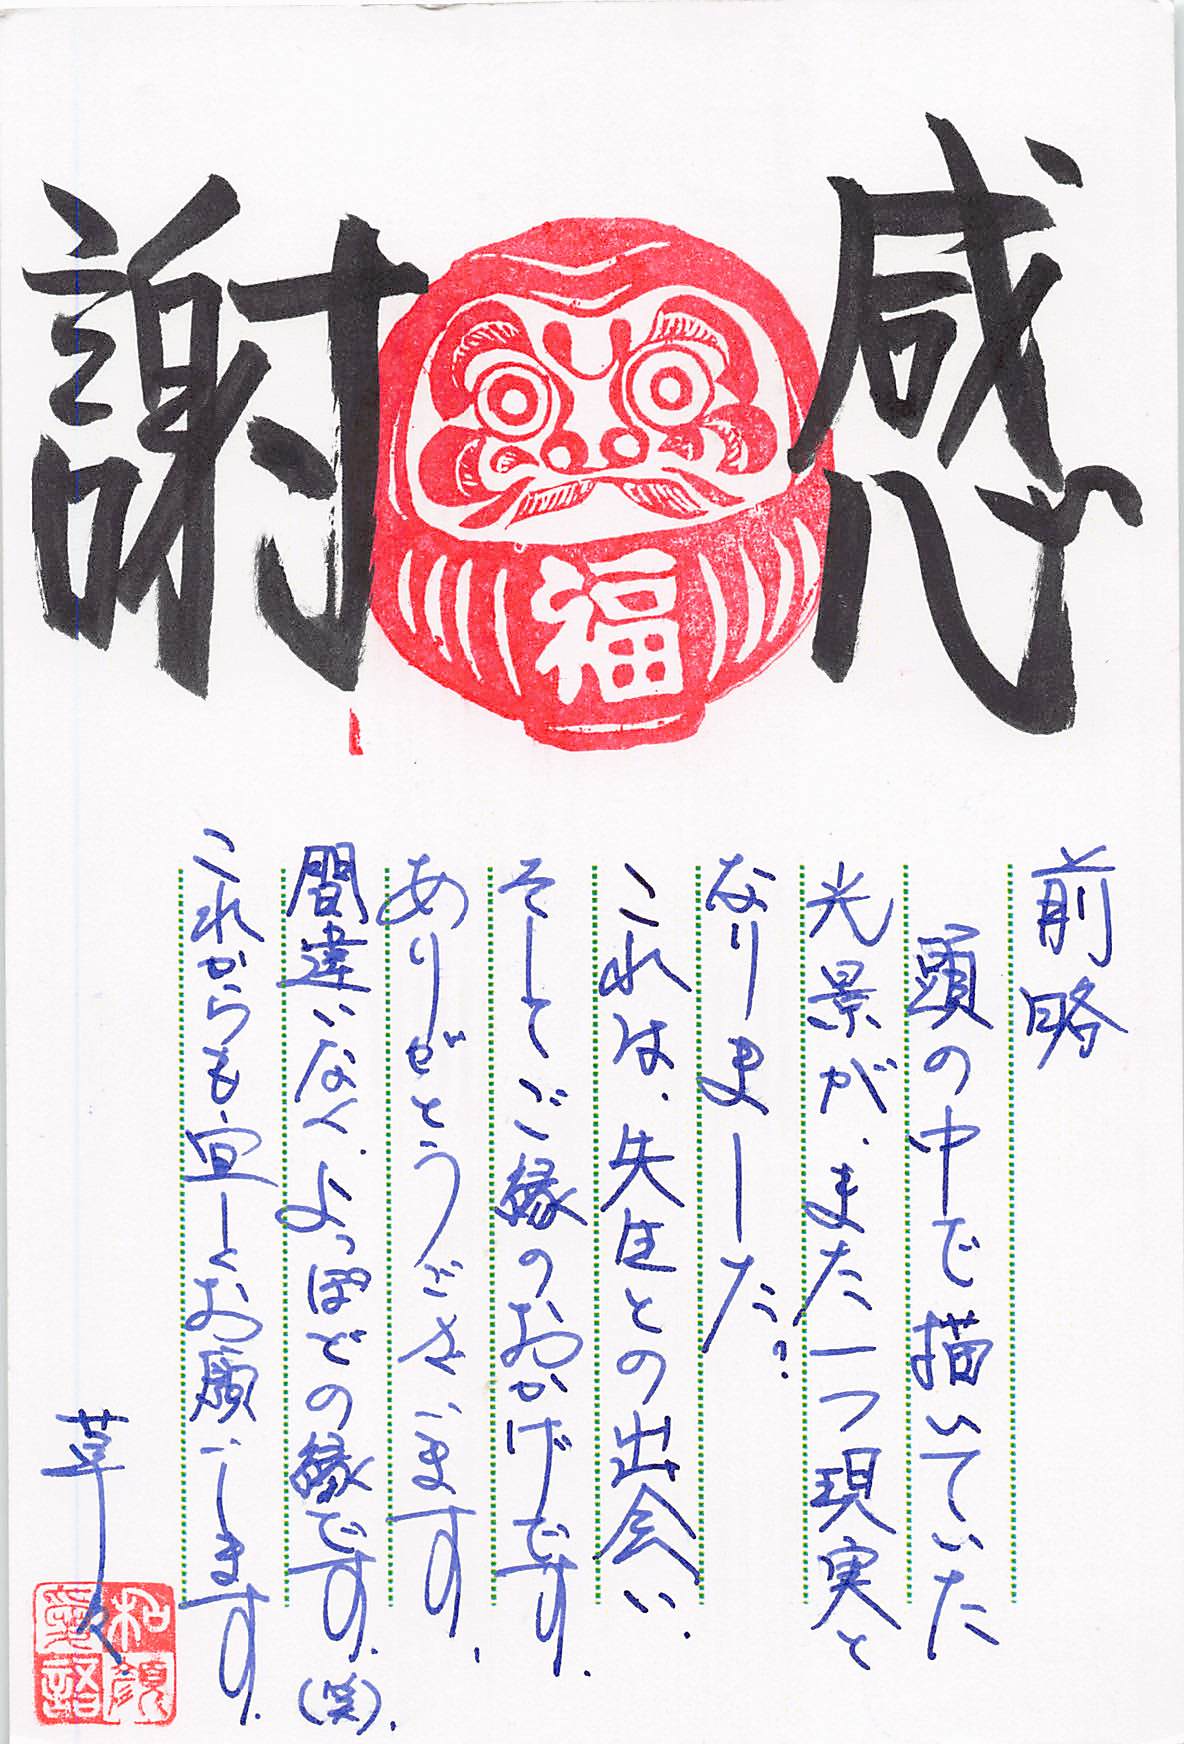 感謝
福
前略
頭の中で描いていた
光景が、また一つ現実と
なりました。
これは、先生との出会い、
そしてご縁のおかげです。
ありがとうございます。
間違いなく、よっぽどの縁です。(笑)。
これからも宜しくお願いします。
草々
和顔愛語